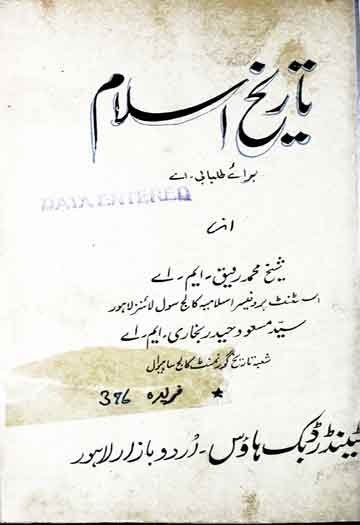 تاریخ اسلام
برائے طلبا بی۔ اے
DATA ENTERED
از
شیخ محمد رفیق۔ ایم۔ اے
اسسٹنٹ پروفیسر اسلامیہ کالج سول لائنز لاہور
سیّد مسعود حیدر بخاری۔ ایم۔ اے
شعبۂ تاریخ گورنمنٹ کالج ساہیوال
★ 386
ٹینڈرڈ بک ہاؤس۔ اُردو بازار لاہور